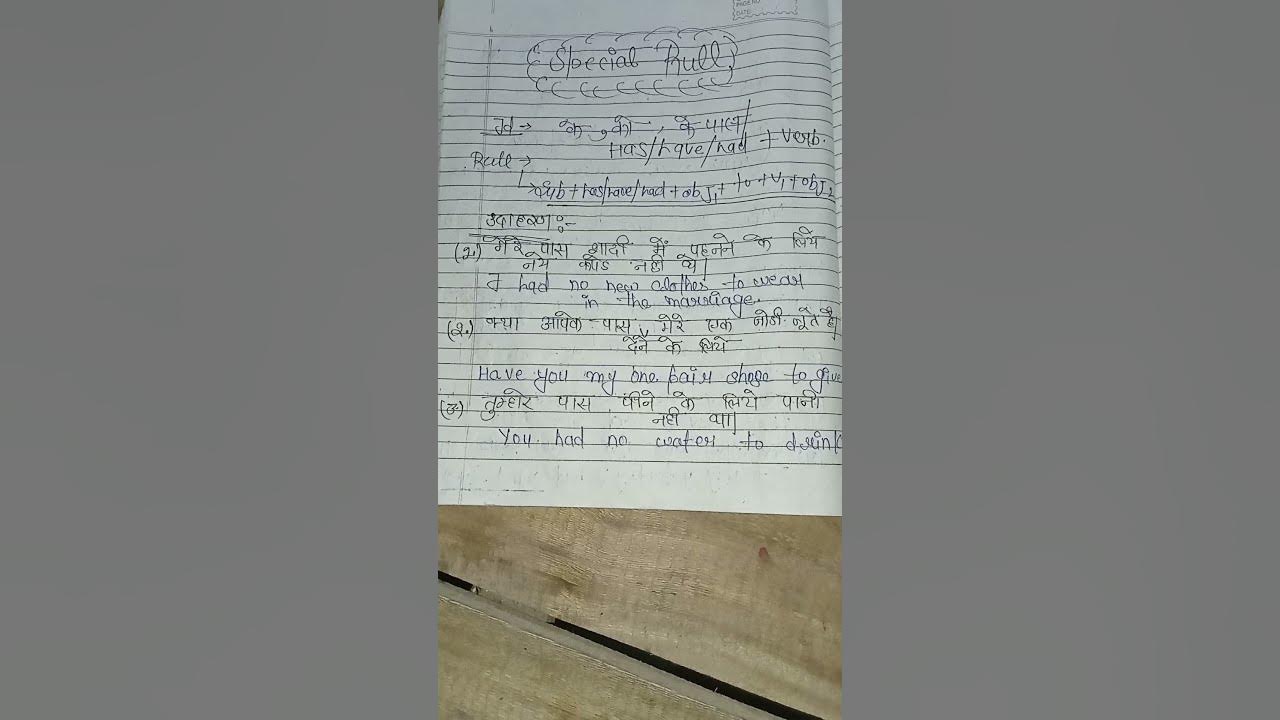 PAGE NO
DATE:
Special Rull
Id → के, को, के पास/
Has/have/had + Verb.
Rule →
Sub + has/have/had + obJ1 + to + V1 + obJ2
उदाहरण:-
(1.) मेरे पास शादी में पहनने के लिये
नये कपडे नही थे।
I had no new clother to wear
in the marriage.
(2.) क्या आपके पास मेरे एक जोडी जूते है।
देने के लिये
Have you my one pair shose to give
(3) तुम्हारे पास पीने के लिये पानी
नही था।
You had no water to drink